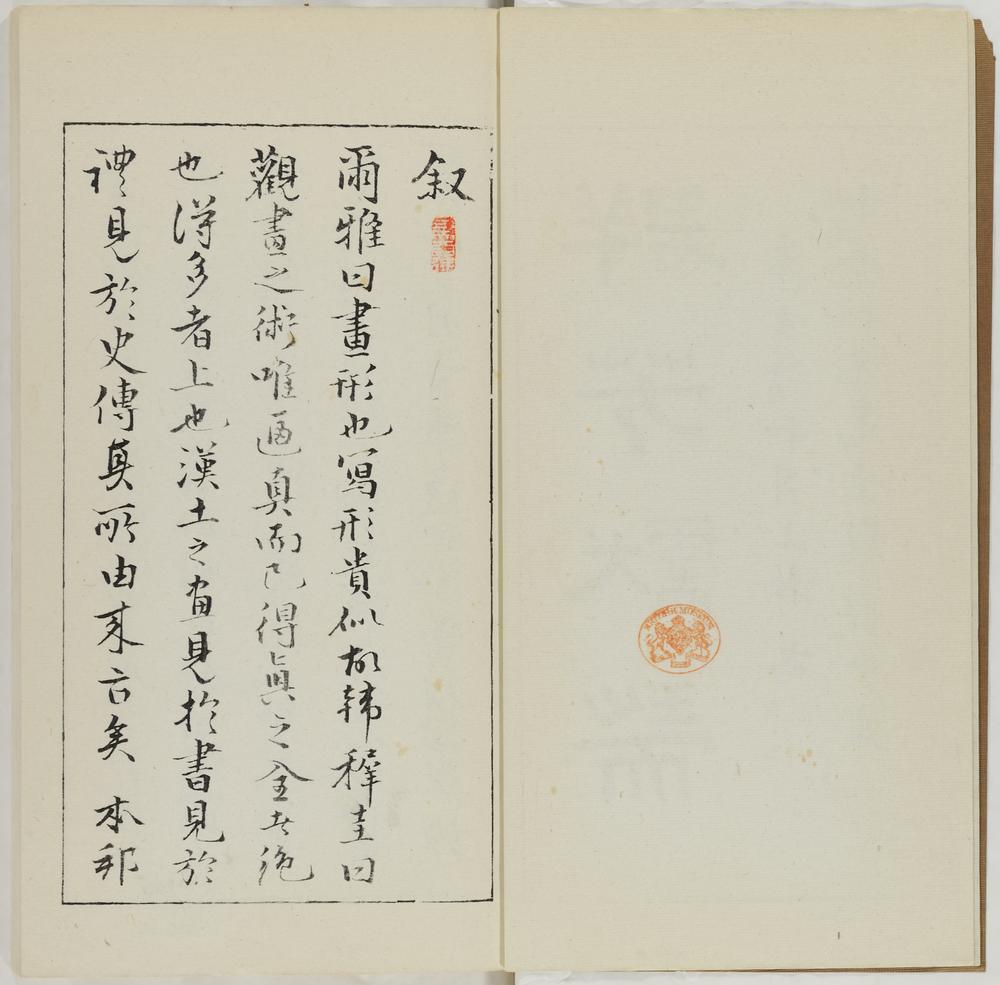 叙
爾雅曰畫形也寫形貴似故韩稺圭曰
觀畫之術唯逼真而已得眞之全者絶
也得多者上也漢土之畫見於書見於
禮見於史傳真所由来古矣 本邦
BRITISH MUSEUM